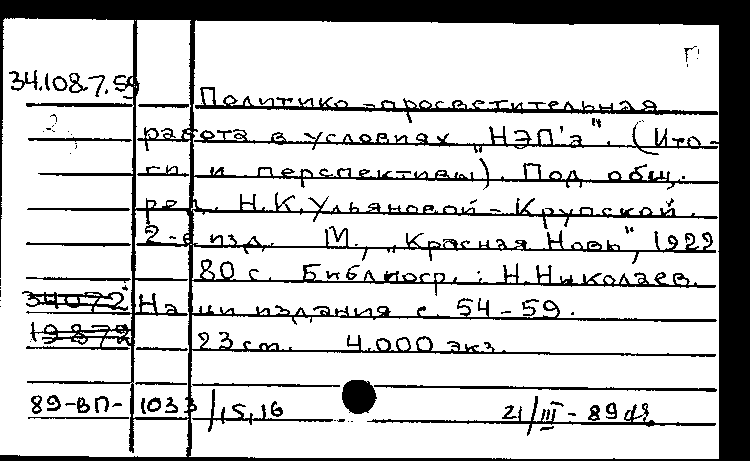 П
34.108.7.59
Политико-просветительная
2
работа в условиях „НЭП'а". (Ито-
ги и перспективы). Под общ.
ред. Н.К.Ульяновой-Крупской.
2-е изд. М., „Красная Новь", 1922
80 с. Библиогр.: Н.Николаев.
34072
На ши издания с. 54-59.
19872
23 см. 4.000 экз.
89-ВП-1033/15,16 21/III-89